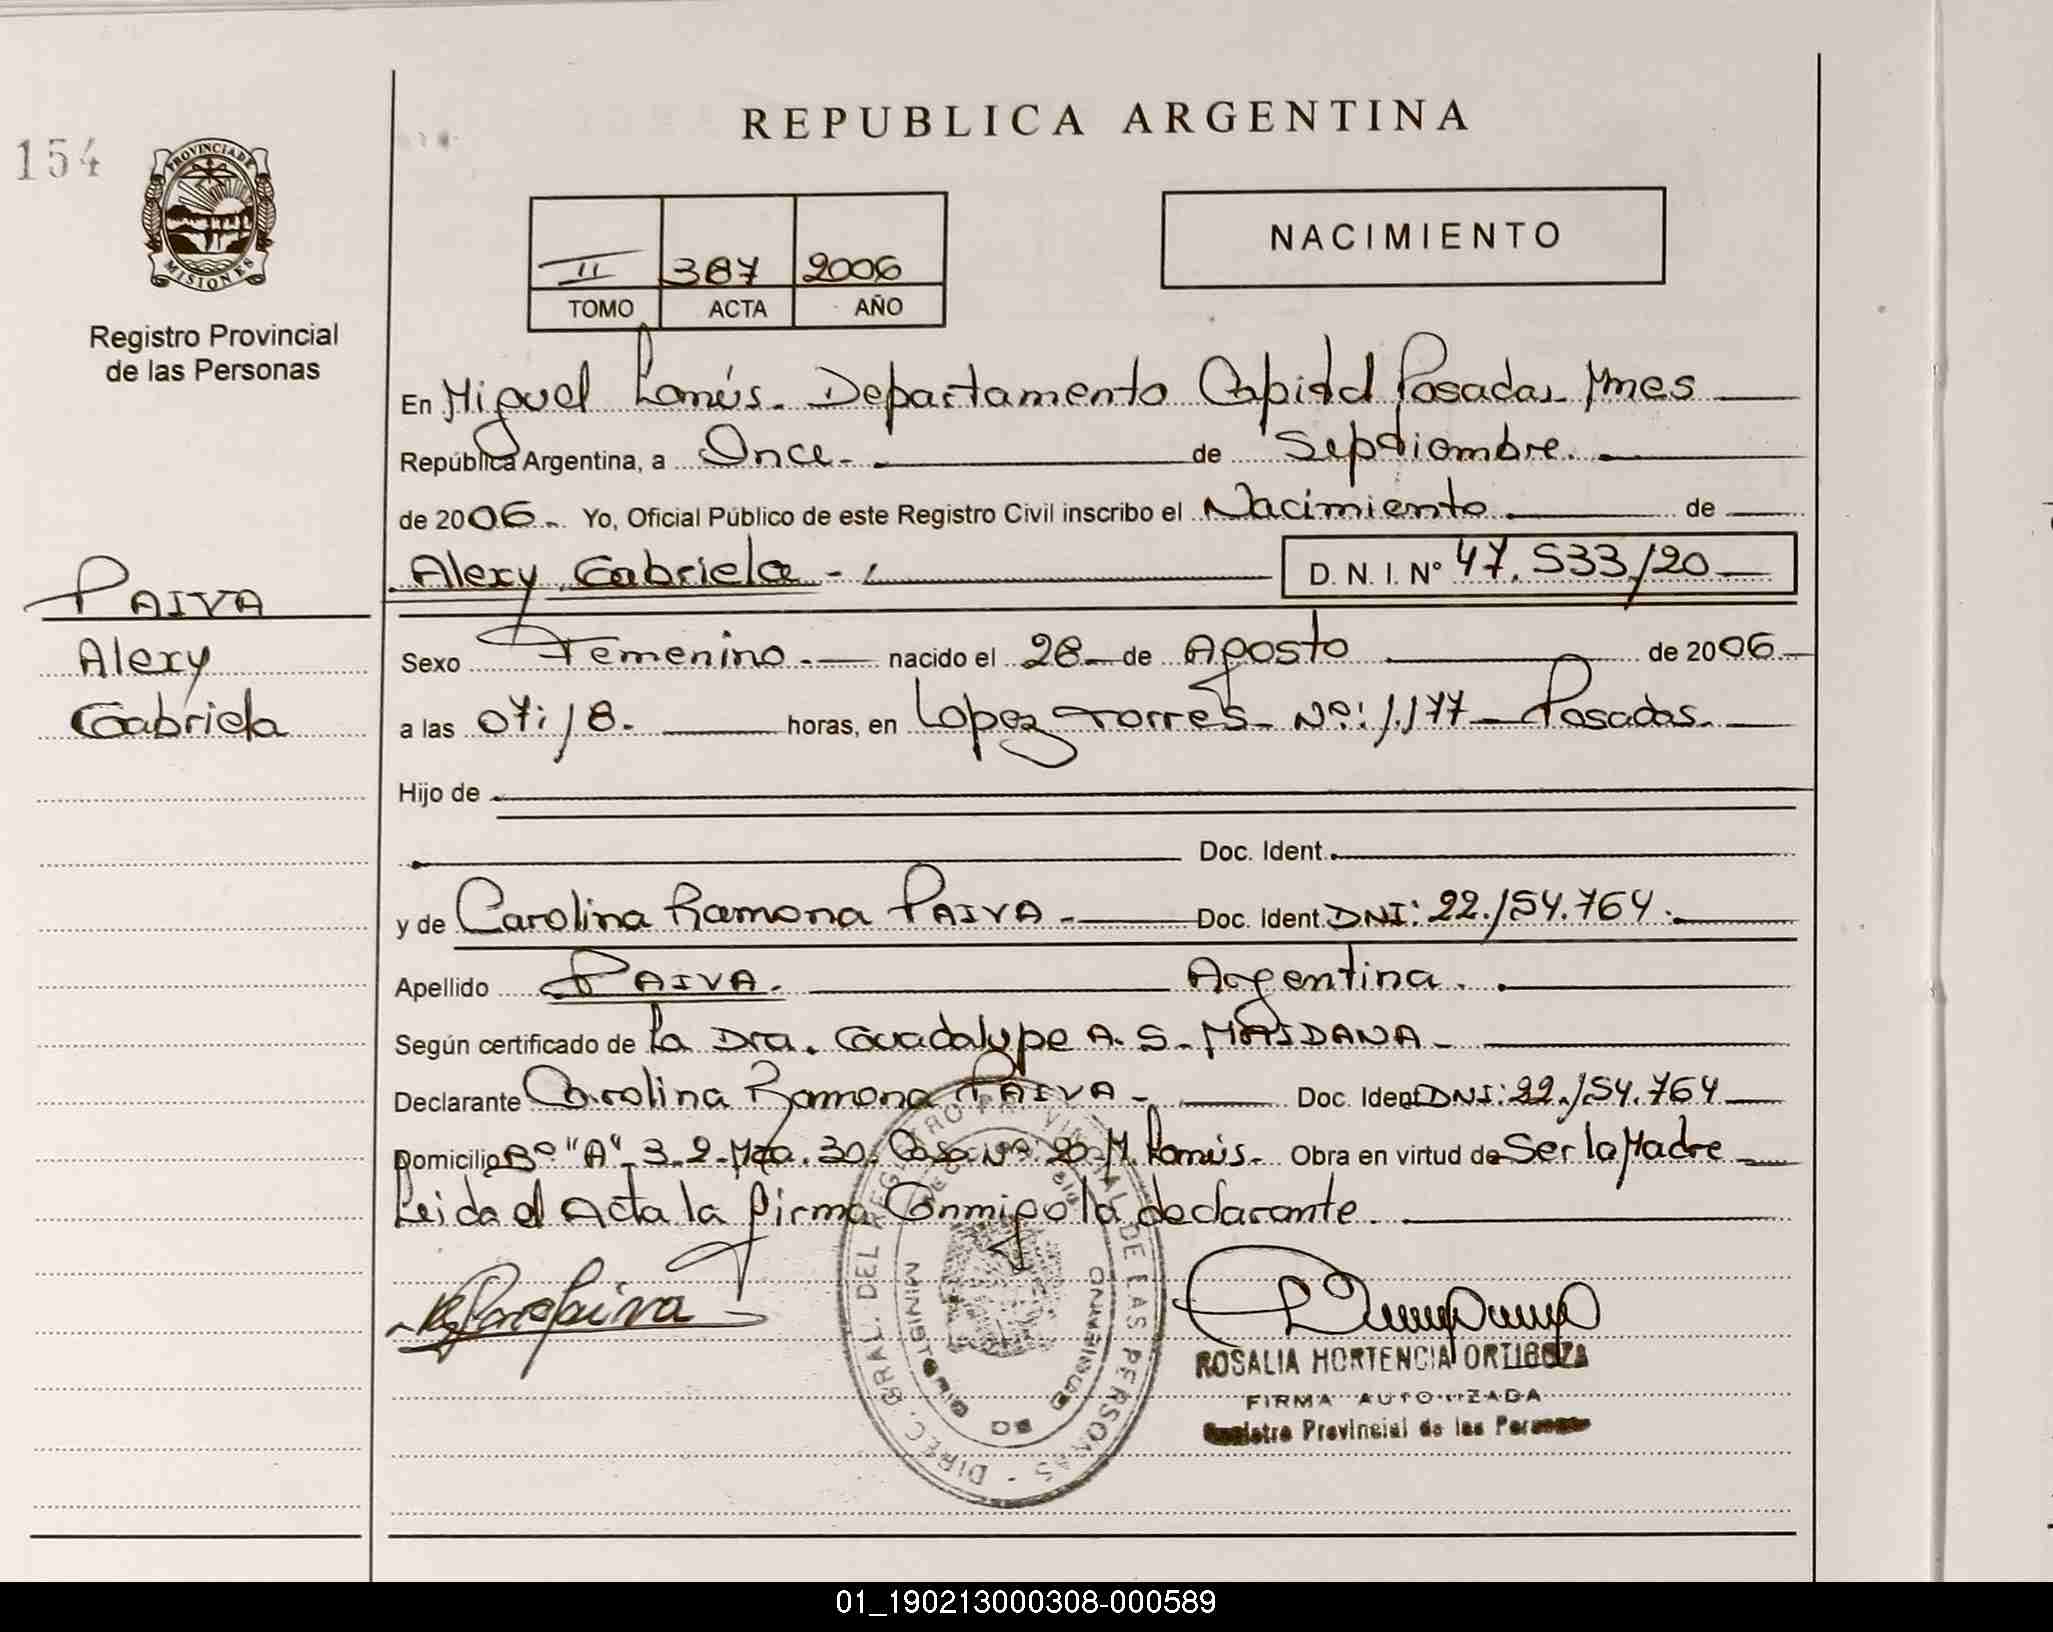 154
PROVINCIA DE
MISIONES
Registro Provincial
de las Personas
REPUBLICA ARGENTINA
II 387 2006
TOMO ACTA AÑO
NACIMIENTO
En Miguel Lanús. Departamento Capital Posadas Mnes
República Argentina, a Once. de Septiembre.
de 2006. Yo, Oficial Público de este Registro Civil inscribo el Nacimiento de
Alexy Gabriela - D. N. I. Nº 47.533.120
PAIVA
Alexy
Gabriela
Sexo Femenino. nacido el 28 de Agosto de 2006
a las 07:18. horas, en Lopez Torres Nº: 1.177 Posadas.
Hijo de
Doc. Ident.
y de Carolina Ramona PAIVA - Doc. Ident. DNI: 22.154.764.
Apellido PAIVA. Argentina.
Según certificado de La Dra. Guadalupe A. S. MAIDANA -
Declarante Carolina Ramona PAIVA - Doc. Ident DNI: 22.154.764
Domicilio Bº "A" 3.2. Mza. 30. Casa Nº 20 M. Lanús. Obra en virtud de Ser la Madre
Leida el Acta la firma Conmigo la declarante.
DIREC. GRAL. DEL REGISTRO PROVINCIAL DE LAS PERSONAS
MINISTERIO DE GOBIERNO
ROSALIA HORTENCIA ORTIGOZA
FIRMA AUTORIZADA
Registro Provincial de las Personas
01_190213000308-000589